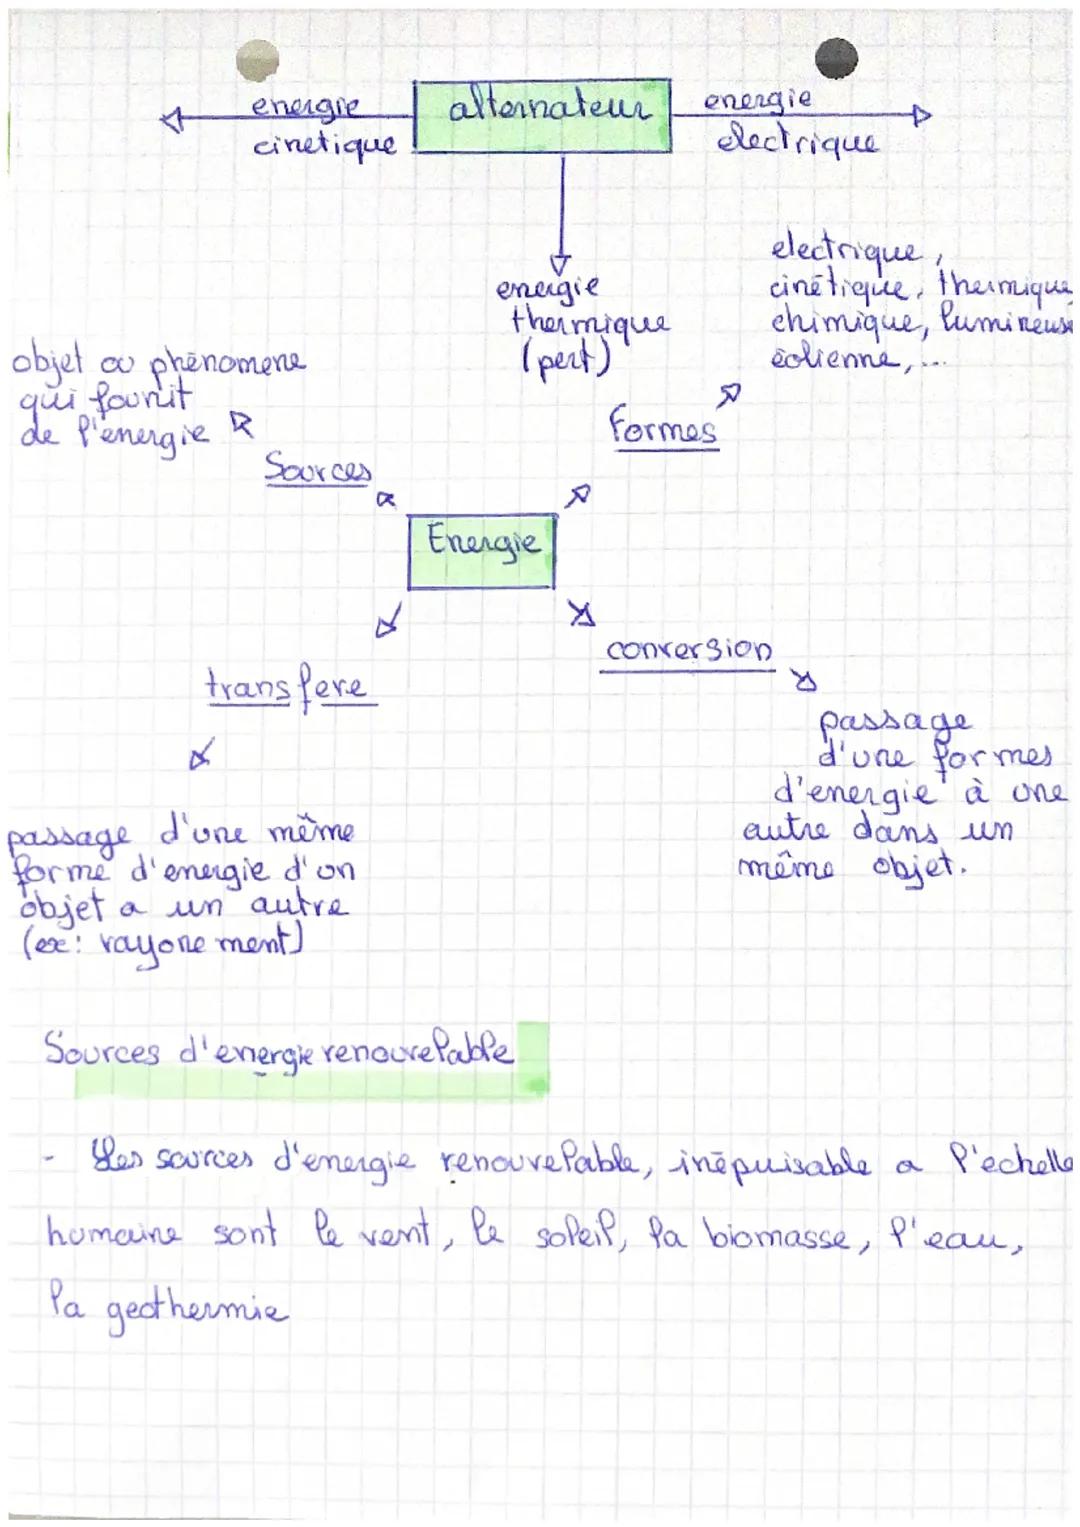 energie
cinetique
alternateur
energie
electrique
energie
thermique
(pert)
electrique,
cinétique, thermique,
chimique, lumineuse
éolienne,...
objet ou phénomene
qui founit
de l'energie
Sources
formes
Energie
transfere
conversion
passage d'une même
forme d'energie d'un
objet a un autre
(ex: rayonement)
passage
d'une formes
d'energie à une
autre dans un
même objet.
Sources d'energie renouvelable
- Les sources d'energie renouvelable, inépuisable a l'echelle
humaine sont le vent, le soleil, la biomasse, l'eau,
la geothermie